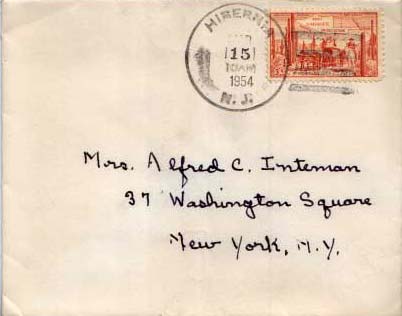 HIBERNIA
15
10AM
1954
N. J.
Mrs. Alfred C. Inteman
37 Washington Square
New York, N.Y.